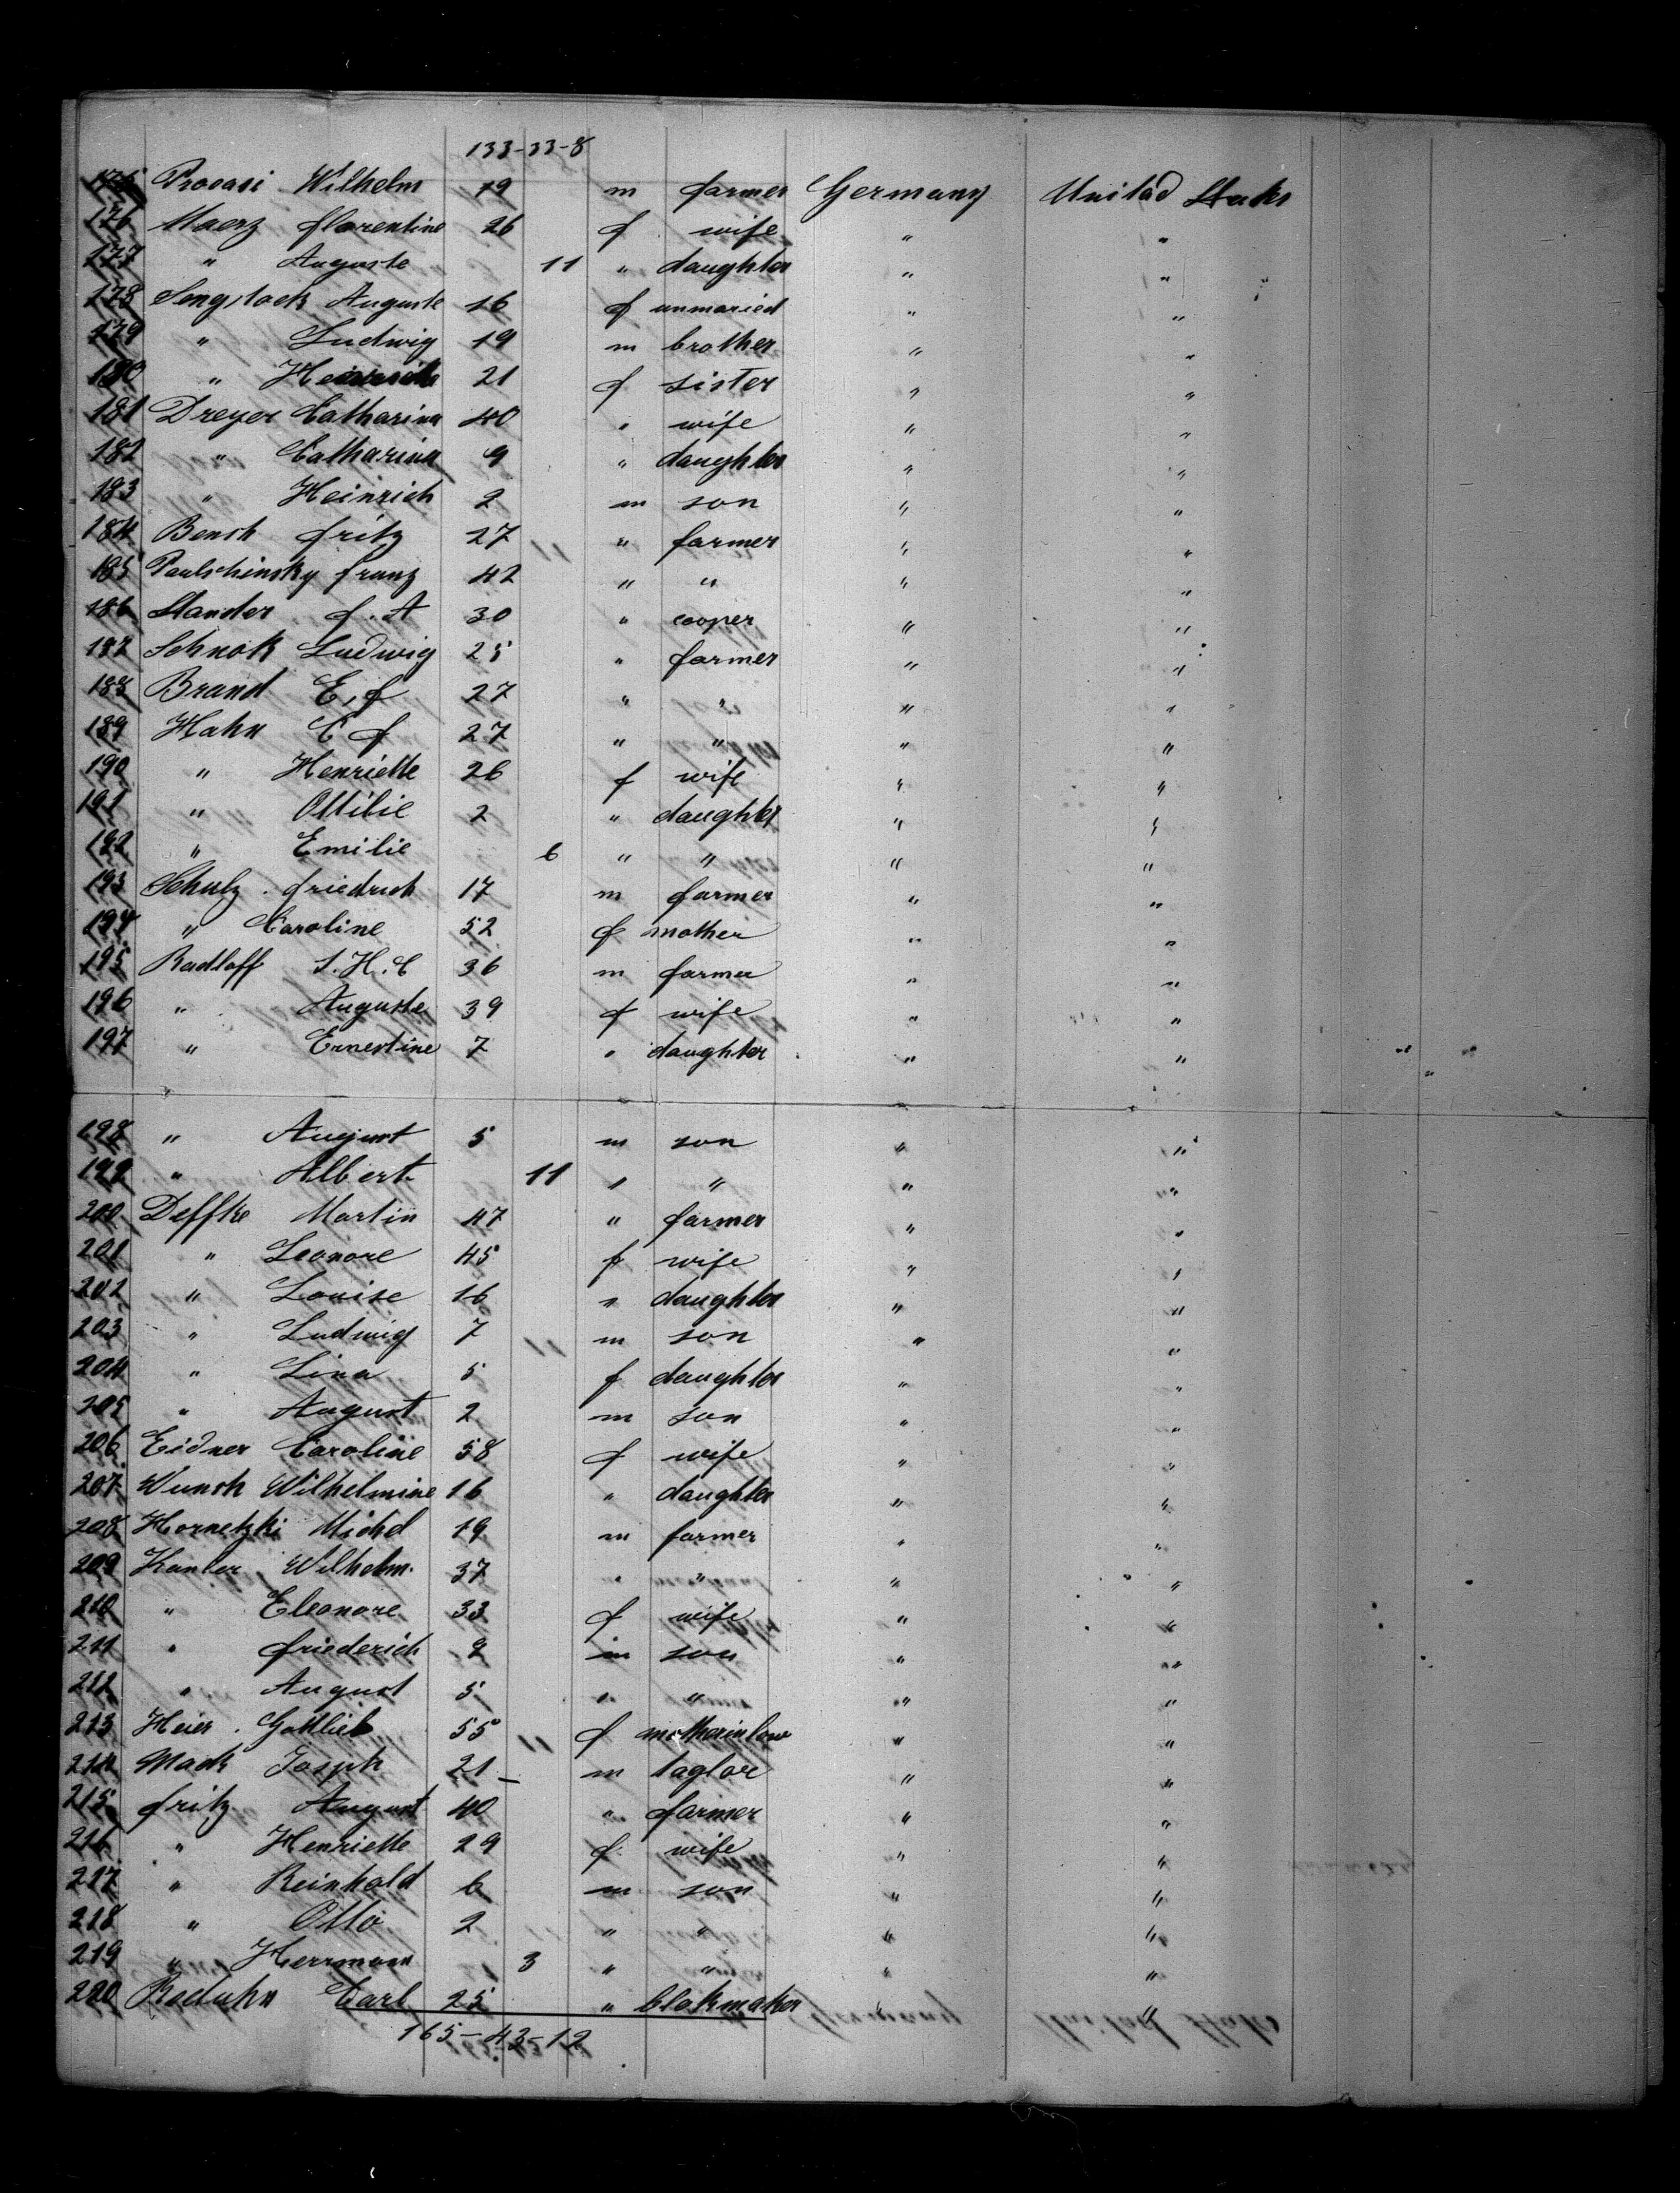 133-33-8
175 Procasi Wilhelm 19 m farmer Germany United States
176 Maerz florentine 26 f wife " "
177 " Auguste 11 " daughter " "
178 Sengstock Auguste 16 f unmaried " "
179 " Ludwig 19 m brother " "
180 " 21 f sister " "
181 Dreyer Catharina 40 " wife " "
182 " Catharina 9 " daughter " "
183 " Heinrich 2 m son " "
184 Bensh fritz 27 " farmer " "
185 Paulschinsky franz 42 " " " "
186 Stander f. A 30 " cooper " "
187 Schnok Ludwig 25 " farmer " "
188 Brand E, f 27 " " " "
189 Hahn C f 27 " " " "
190 " Henriette 26 f wife " "
191 " Ottilie 2 " daughter " "
192 " Emilie 6 " " " "
193 Schulz friedrich 17 m farmer " "
194 " Caroline 52 f mother " "
195 Radloff J. H. C 36 m farmer " "
196 " Auguste 39 f wife " "
197 " Ernestine 7 " daughter " "
198 " August 5 m son " "
199 " Albert 11 " " " "
200 Deffke Martin 47 " farmer " "
201 " Leonore 45 f wife " "
202 " Louise 16 " daughter " "
203 " Ludwig 7 m son " "
204 " Lina 5 f daughter " "
205 " August 2 m son " "
206 Eidner Caroline 58 f wife " "
207 Wunsh Wilhelmine 16 " daughter " "
208 Hornetzki Michel 19 m farmer " "
209 Kanter Wilhelm. 37 " " " "
210 " Eleonore 33 f wife " "
211 " friederich 9 m son " "
212 " August 5 " " " "
213 Heier Gottlieb 55 f motherinlow " "
214 Mack Joseph 21 m taylor " "
215 fritz August 40 " farmer " "
216 " Henriette 29 f wife " "
217 " Reinhold 6 m son " "
218 " Otto 2 " " " "
219 " Herrmann 3 " " " "
220 Roduhn Carl 25 " blokmaker " "
165-43-12